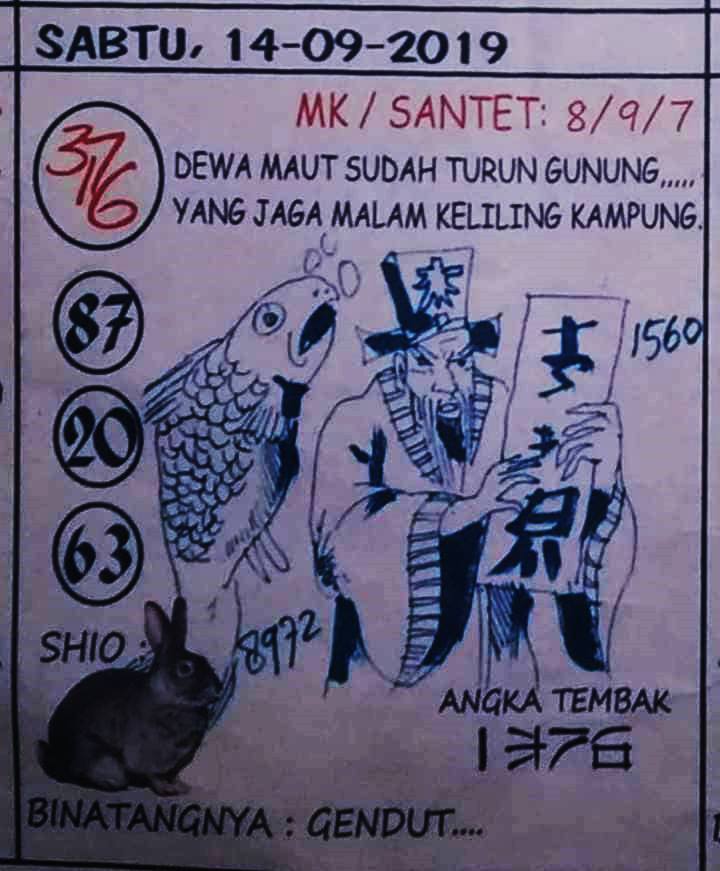 SABTU, 14-09-2019
MK / SANTET: 8/9/7
3716
DEWA MAUT SUDAH TURUN GUNUNG,,,,,
YANG JAGA MALAM KELILING KAMPUNG.
87
1560
20
63
SHIO :
8972
ANGKA TEMBAK
1376
BINATANGNYA : GENDUT....